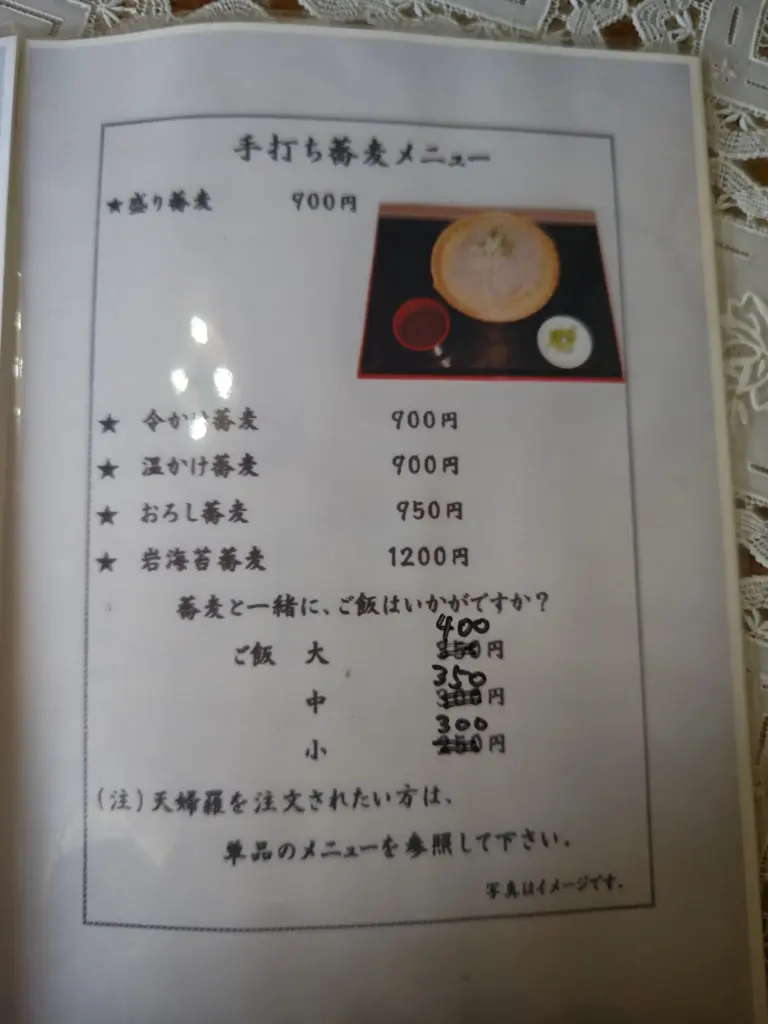 手打ち蕎麦メニュー
★盛り蕎麦 900円
★ 冷かけ蕎麦 900円
★ 温かけ蕎麦 900円
★ おろし蕎麦 950円
★ 岩海苔蕎麦 1200円
蕎麦と一緒に、ご飯はいかがですか？
400
ご飯 大 350円
350
中 300円
300
小 250円
(注)天婦羅を注文されたい方は、
単品のメニューを参照して下さい。
写真はイメージです。